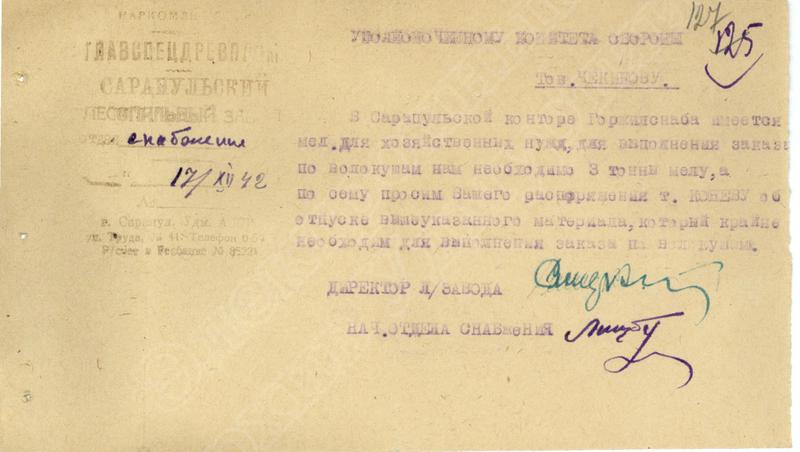 127
125
НАРКОМЛЕС
ГЛАВСПЕЦДРЕВПРОМ
САРАПУЛЬСКИЙ
ЛЕСОПИЛЬНЫЙ ЗАВОД
ОТДЕЛ снабжения
17/XII 42
г. Сарапул, Удм. АССР
ул. Труда, № 41. Телефон
Р/счет в Госбанке №
УПОЛНОМОЧЕННОМУ КОМИТЕТА ОБОРОНЫ
Тов. ЧЕКИНОВУ.
В Сарапульской конторе Горжилснаба имеется
мел.для хозяйственных нужд,для выполнения заказа
по волокушам нам необходимо 3 тонны мелу,а
по сему просим Вашего распоряжения т. КОНЕВУ об
отпуске вышеуказанного материала,который крайне
необходим для выполнения заказа по волокушам.
ДИРЕКТОР Л/ЗАВОДА
НАЧ.ОТДЕЛА СНАБЖЕНИЯ